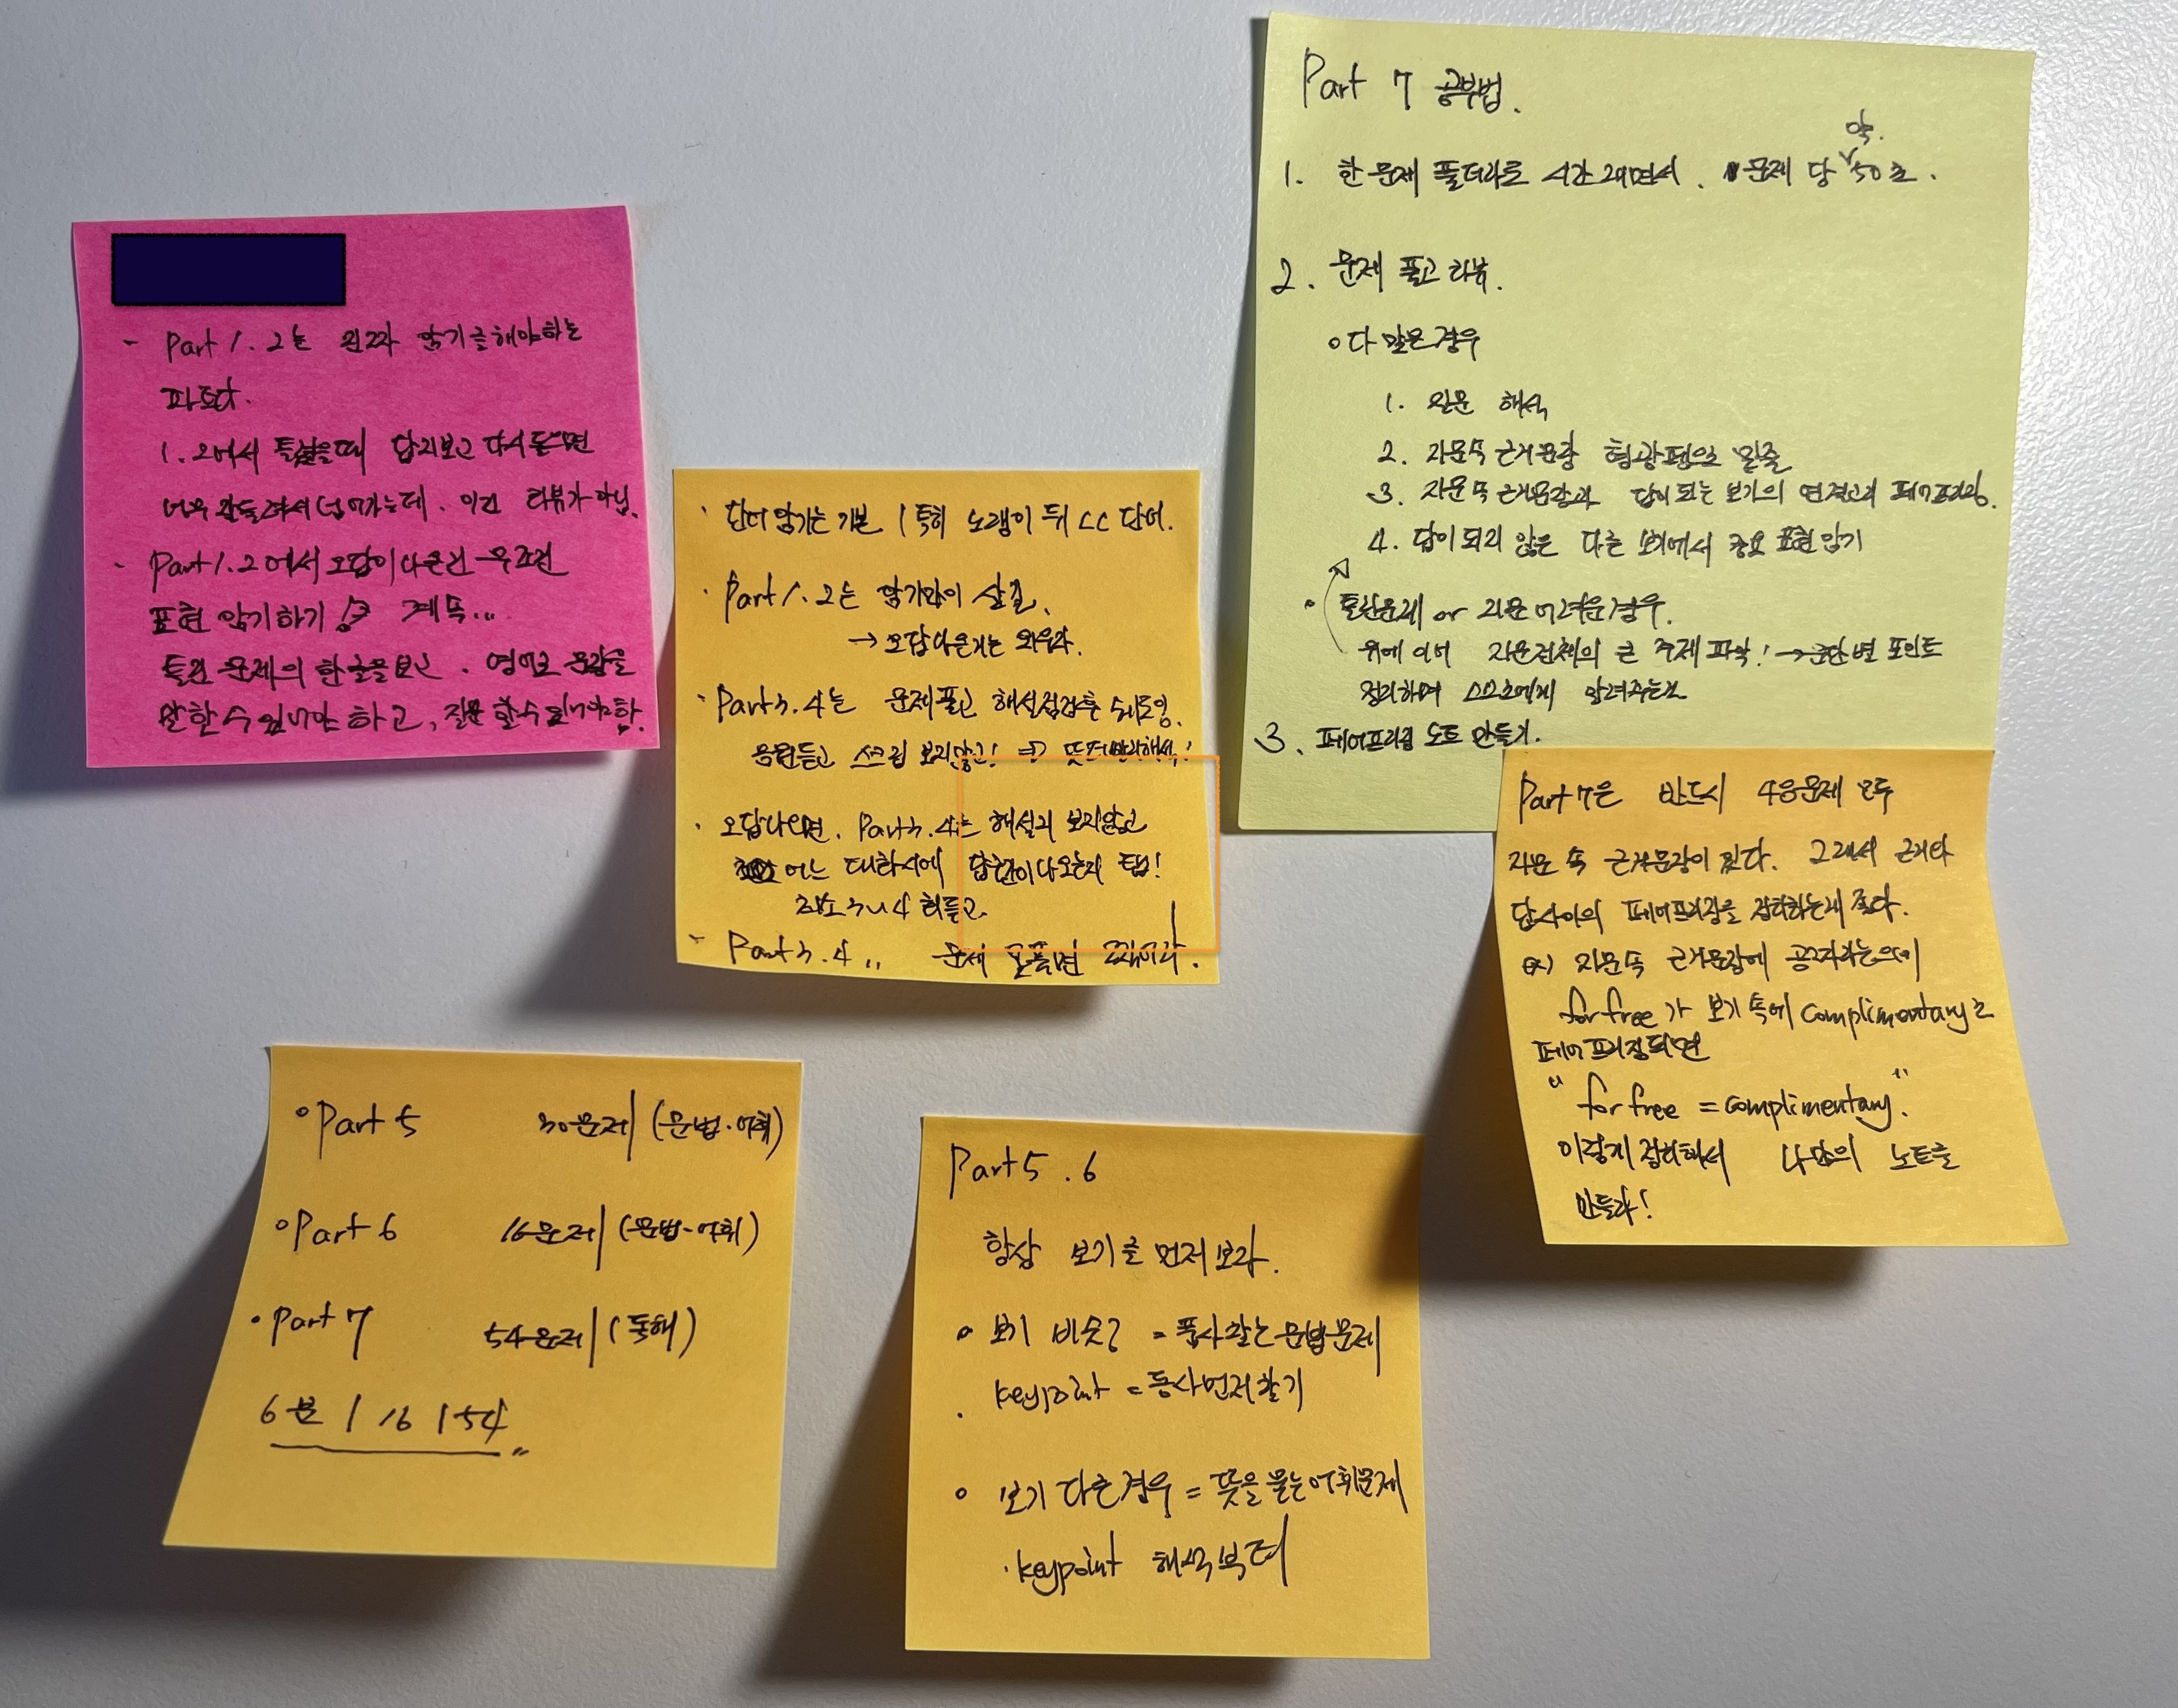 - Part 1.2는 진짜 암기를해야하는
파트다.
1.2에서 틀렸을때 답지보고 다시들으면
너무 잘들려서 넘어가는데. 이건 리뷰가 아님.
· Part 1.2에서 오답이 나온건 무조건
표현 암기하기 계속...
틀린 문제의 한글을보고. 영어로 문장을
말할 수 있어야 하고, 질문 할수 있어야함.
· 단어 암기는 기본 / 특히 노랭이 뒤 LC 단어.
· Part 1.2는 암기만이 살길.
→ 오답나온거는 외우자.
· Part 3.4는 문제풀고 해설점검후
음원듣고 스크립 보지않고! ⇒
· 오답나오면. Part 3.4는 해설지 보지않고
어느 대화시에 답변이나오는지 탭!
최소 3~4 회듣고
- Part 3.4 ,, 문제 못풀면
Part 7 공부법.
약.
1. 한 문제 풀더라도 시간 재면서. 문제 당 50초.
2. 문제 풀고 리뷰.
○ 다 맞은경우
1. 지문 해석
2. 지문속 근거문장 형광펜으로 밑줄
3. 지문 속 근거문장과 답이 되는 보기의 연결고리 페어프리징.
4. 답이 되지 않은 다른 보기에서 중요 표현 암기
· 틀린문제 or 지문 어려운경우.
위에 이어 지문전체의 큰 주제 파악! → 문단 별 포인트
정리하며 스스로에게 알려주는것
3. 페어프리징 노트 만들기.
Part 7은 반드시 48문제 모두
지문 속 근거문장이 있다. 그래서 근거와
답사이의 페어프리징을 정리하는게 좋다.
ex) 지문속 근거문장에 공짜라는의미
for free가 보기 속에 complimentary로
페어프리징되면
"for free = complimentary."
이렇게 정리해서 나만의 노트를
만들자!
○ Part 5 30문제 | (문법·어휘)
○ Part 6 16문제 | (문법-어휘)
· Part 7 54문제 | (독해)
6분 / 16 / 54 〃
Part 5 . 6
항상 보기를 먼저보라.
○ 보기 비슷? = 품사찾는 문법문제
. keypoint = 동사먼저찾기
○ 보기 다른경우 = 뜻을 묻는어휘문제
· keypoint 해석부터